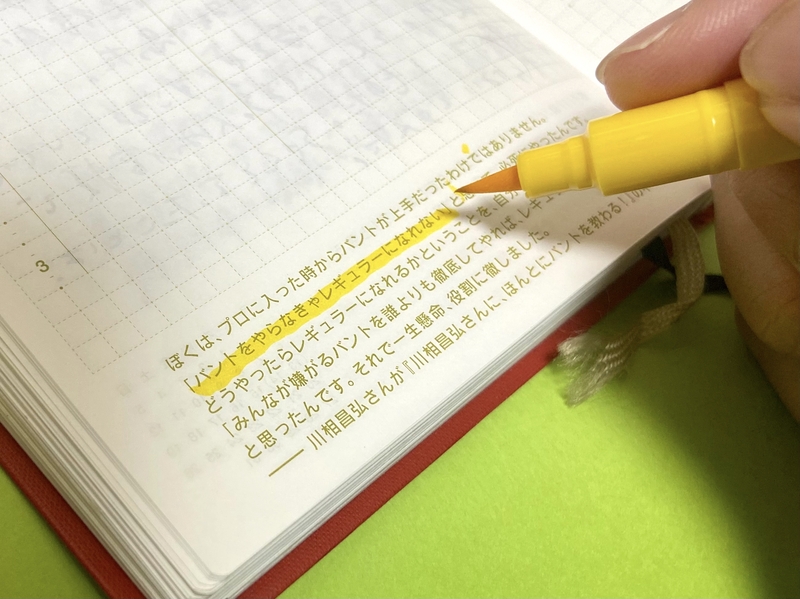 3
ぼくは、プロに入った時からバントが上手だったわけではありません。
「バントをやらなきゃレギュラーになれない」と思 て、必死にやったんです。
どうやったらレギュラーになれるかということを、自分
「みんなが嫌がるバントを誰よりも徹底してやれば、レギュ
と思ったんです。それで一生懸命、役割に徹しました。
── 川相昌弘さんが『川相昌弘さんに、ほんとにバントを教わる!』の